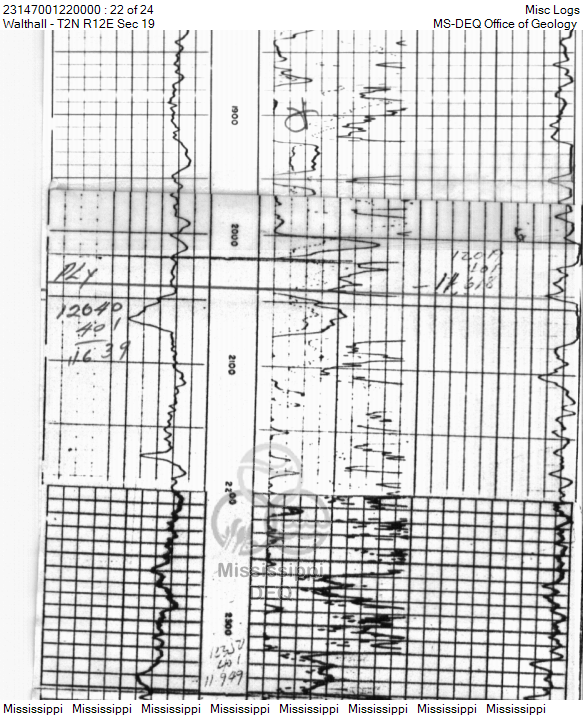 23147001220000 : 22 of 24
Misc Logs
Walthall - T2N R12E Sec 19
MS-DEQ Office of Geology
1900
2000
PLY
12040
401
11639
2100
2200
Mississippi
DEQ
2300
401
Mississippi Mississippi Mississippi Mississippi Mississippi Mississippi Mississippi Mississippi